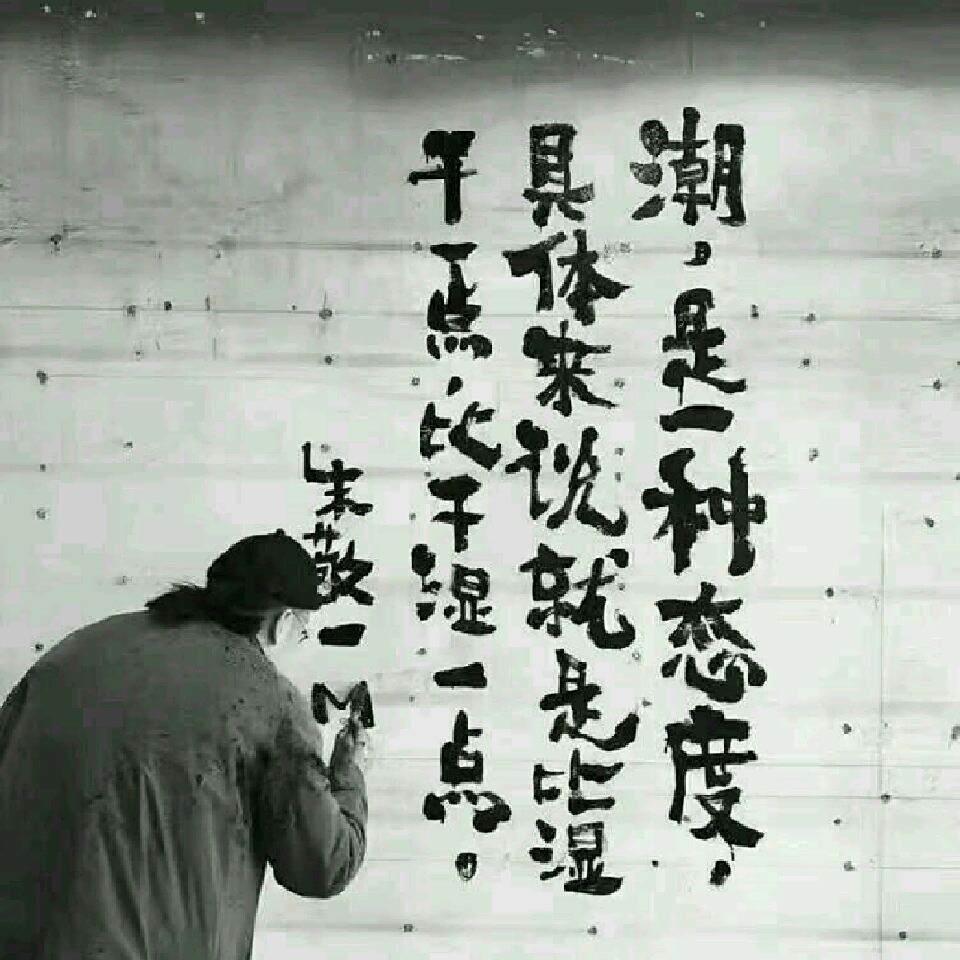 潮，是一种态度，
具体来说就是比湿
干一点，比干湿一点。
朱敬一 M